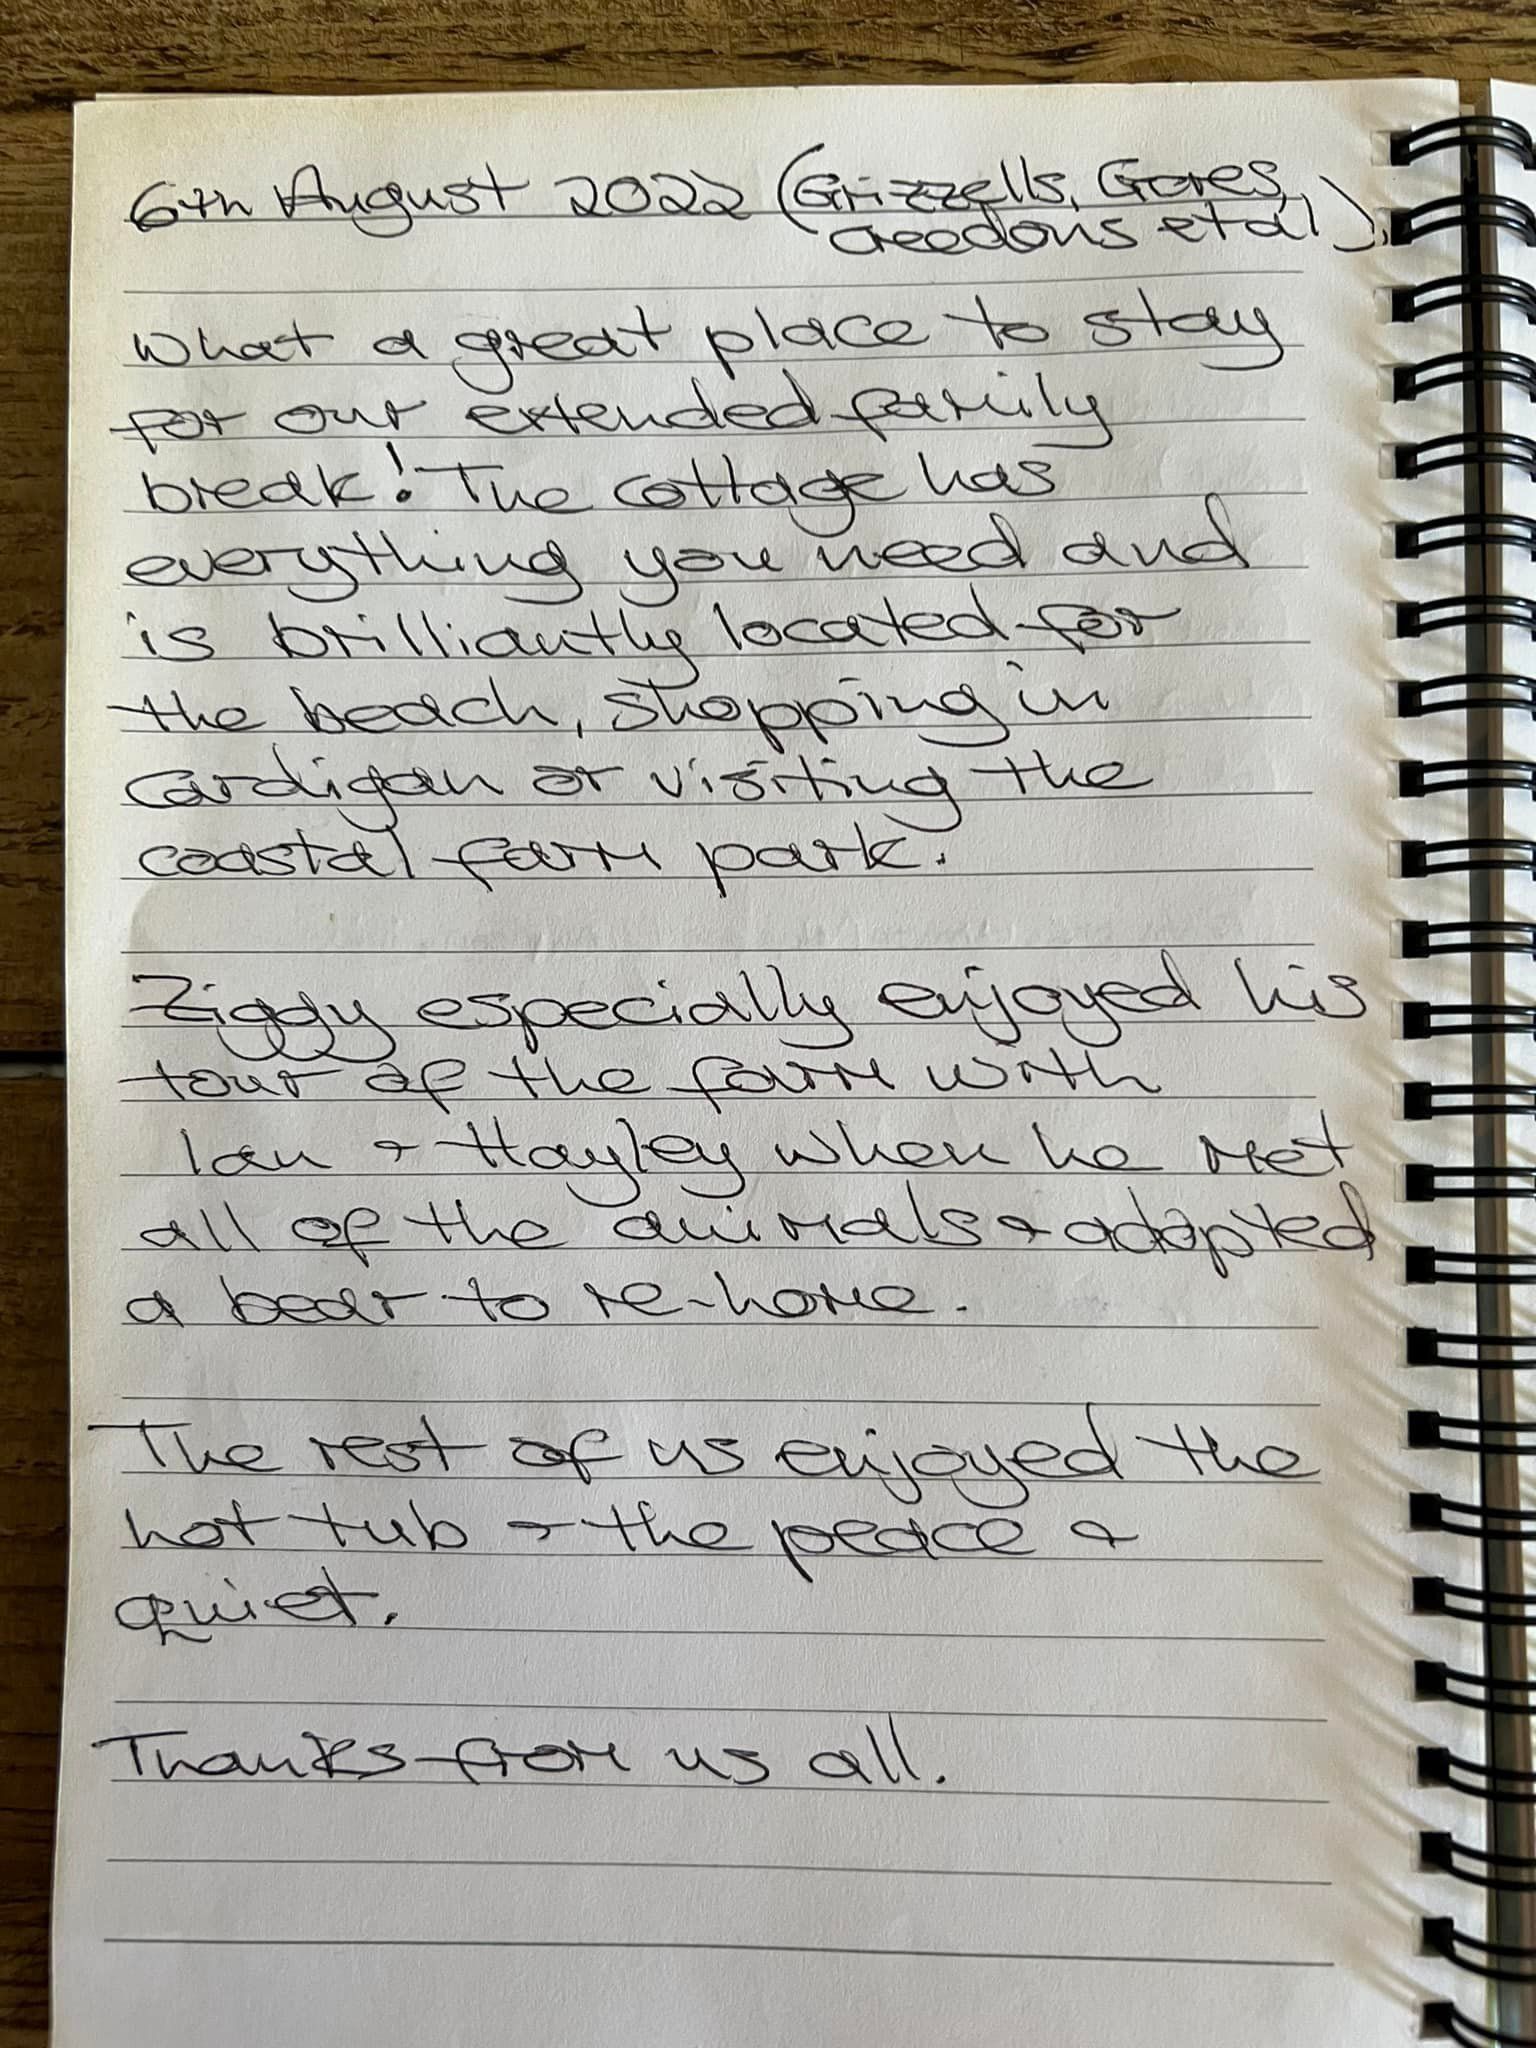 6th August 2022 (Grizzells, Gores,
Creedons et al).
What a great place to stay
for our extended family
break! The cottage has
everything you need and
is brilliantly located for
the beach, shopping in
Cardigan or visiting the
coastal farm park.
Ziggy especially enjoyed his
tour of the farm with
Ian & Hayley when he met
all of the animals & adopted
a bear to re-home.
The rest of us enjoyed the
hot tub & the peace &
quiet.
Thanks from us all.